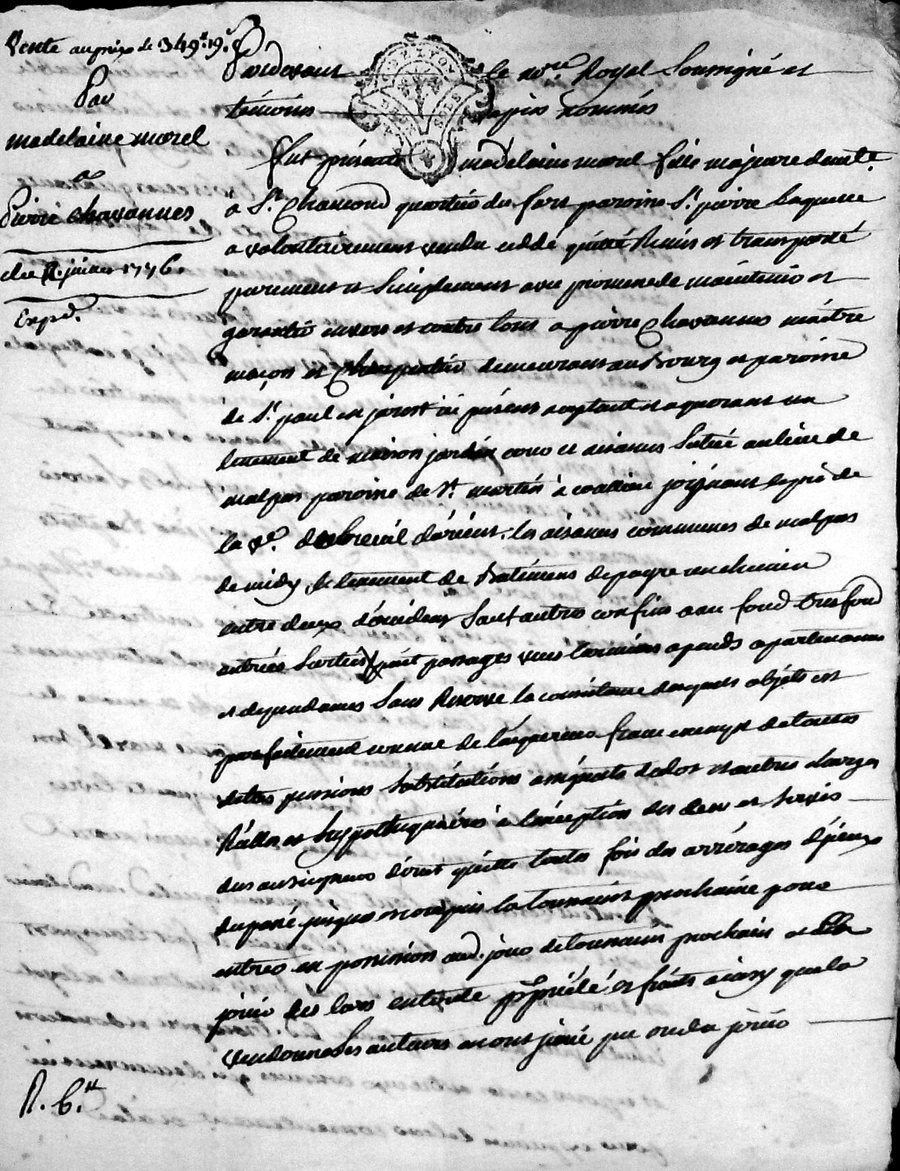 Vente au prix de 349ᵗᵗ 19ˢ
Par
madelaine morel
a
Pierre chavannes
du juin 1776.
Exped.
Pardevant le nore Royal Soussigné et
témoins apres nommés
fut presente madelaine morel fille majeure demte
a St Chamond quartier du fort paroisse St pierre laquelle
a volontairement vendu cédé quitté Remis et transporté
purement et Simplement avec promesse de maintenir et
garantir envers et contre tous a pierre Chavannes maitre
maçon et Charpentier demeurant au Bourg et paroisse
de St paul en jarest ici present acceptant et aquerant un
tenement de maison jardin cour et aisances Situé au lieu de
malpas paroisse de St martin a coallieu joignant le pré de
la De dubreüil d'orient, les aisances communes de malpas
de midy, le tenement de Batimens de payre un chemin
entre deux d'occident Sauf autres confins avec fond tresfond
entrées Sorties passages apends apartenances
et dependances Sans Reserve la consistance desquels objets est
parfaitement connue de l'aquereur franc exempt de toutes
dettes pensions Substitutions augments de dot et autres charges
Réelles et hyppothequaires à l'exception des cens et Servis
dus au seigneur direct quitte toutes fois des arrérages d'iceux
du passé jusques et compris la toussaint prochaine pour
entrer en possession aud. jour de toussaint prochain et
jouir dès lors en toute pproprieté et fruits ainsy que la
venderesse Ses auteurs en ont joui pu ou du jouir
R. 6.ᵗᵗ